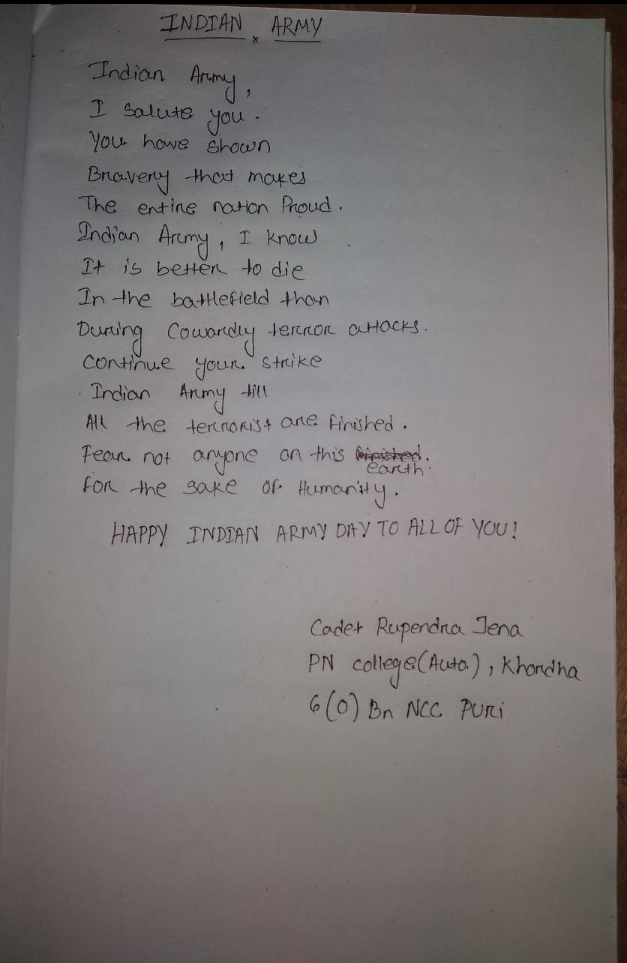 INDIAN ARMY
Indian Army,
I salute you.
You have shown
Bravery that makes
The entire nation Proud.
Indian Army, I know
It is better to die
In the battlefield than
During Cowardly terror attacks.
Continue your strike
Indian Army till
All the terrorist are finished.
Fear not anyone on this finished.
earth.
For the sake of Humanity.
HAPPY INDIAN ARMY DAY TO ALL OF YOU!
Cadet Rupendra Jena
PN college(Auto.), Khordha
6(O) Bn NCC PURI